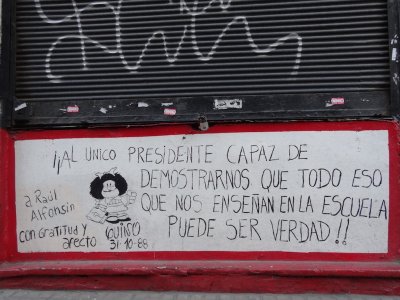 ¡¡AL UNICO PRESIDENTE CAPAZ DE
DEMOSTRARNOS QUE TODO ESO
QUE NOS ENSEÑAN EN LA ESCUELA
PUEDE SER VERDAD!!
a Raúl
Alfonsín
con gratitud y
afecto
QUINO
31-10-88